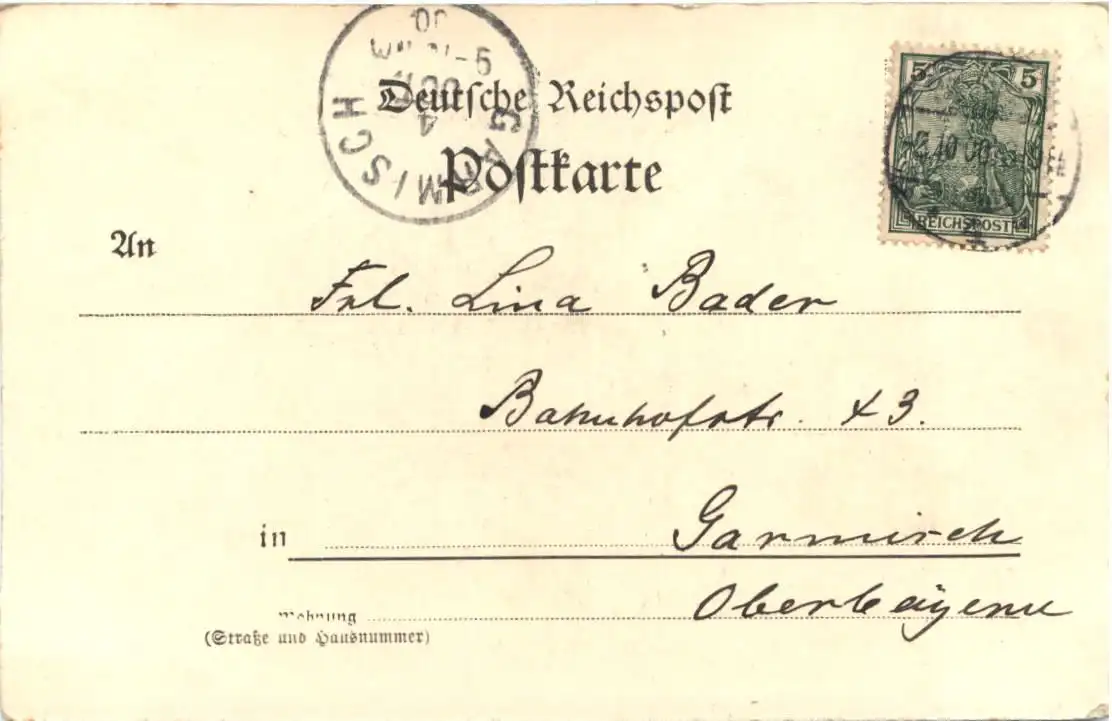 Deutsche Reichspost
Postkarte
GARMISCH
4
OCT
00
5 5
REICHSPOST
10 00
An
Frl. Lina Bader
Bahnhofstr. 43.
in
Garmisch
Oberbayern
Wohnung
(Straße und Hausnummer)